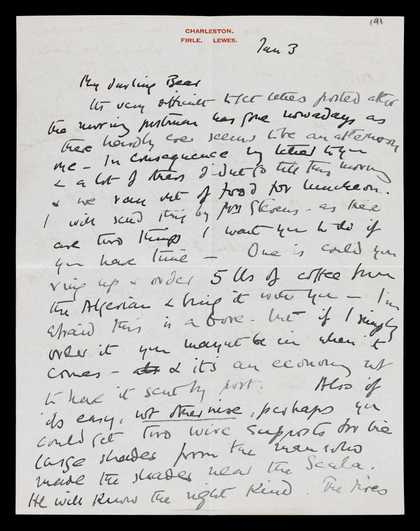 191
CHARLESTON.
FIRLE. LEWES.
Jan 3
My darling Bear
Its very difficult to get letters posted after
the morning postman has gone nowadays as
there hardly ever seems to be an afternoon
one – In consequence my letter to you
& a lot of others didn't go till this morning
& we ran out of food for luncheon.
I will send this by Mrs Stevens – as there
are two things I want you to do if
you have time – One is could you
ring up & order 5 lbs of coffee from
the Algerian & bring it with you – I'm
afraid this is a bore – but if I simply
order it you maynt be in when it
comes – & it's an economy not
to have it sent by post. Also if
its easy, not otherwise, perhaps you
could get two wire supports for the
large shades from the man who
made the shades near the Scala.
He will know the right kind. The